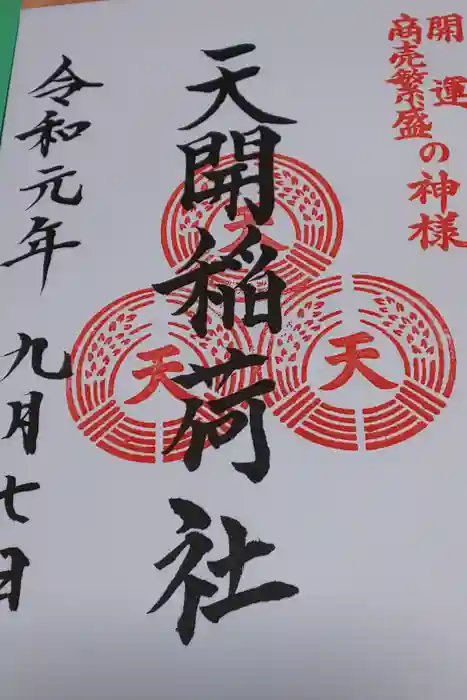 開運
商売繁盛の神様
天開稲荷社
天
天
天
令和元年 九月七日